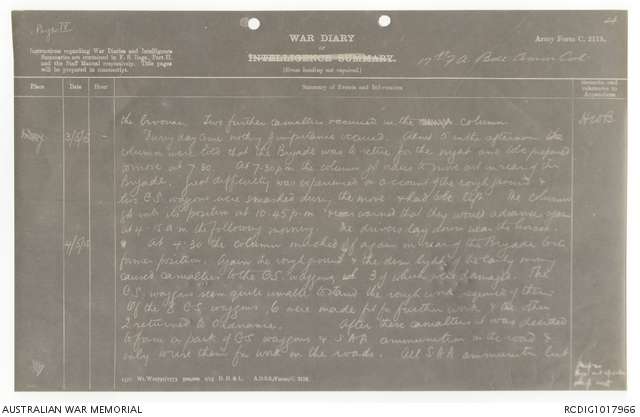 Page IV
WAR DIARY
or
INTELLIGENCE SUMMARY.
(Erase heading not required.)
Army Form C. 2118.
Instructions regarding War Diaries and Intelligence
Summaries are contained in F. S. Regs., Part II.
and the Staff Manual respectively. Title pages
will be prepared in manuscript.
Bde Ammn Col
Place Date Hour Summary of Events and Information Remarks and references to Appendices
the Two further casualties occurred in the column
3/5/15 - During day nothing of importance occurred. About 5 in the afternoon the
column were told that the Brigade was to retire for the night and be prepared
to move at 7.30. At 7.30 pm the column got orders to move out in rear of the
Brigade. Great difficulty was experienced on account of the rough ground &
two G.S. waggons were smashed during the move & had to be left. The Column
got into its position at 10.45 p.m. & warned that they would advance again
at 4.15 am the following morning. The drivers lay down near the horses.
4/5/15 At 4.30 the column marched off again in rear of the Brigade to its
former position. Again the rough ground & the dim light of the early morning
caused casualties to the G.S. waggons, 3 of which were damaged. The
G.S. waggons seem quite unable to stand the rough work required of them
Of the 8 G.S. waggons, 6 were made fit for further work & the other
2 returned to Ordnance. After these casualties it was decided
to form a park of G.S. waggons & S.A.A. ammunition on the road &
only to use them for work on the roads. All S.A.A. ammunition
D. D. & L. A.D.S.S./Forms/C. 2118.
AUSTRALIAN WAR MEMORIAL
RCDIG1017966